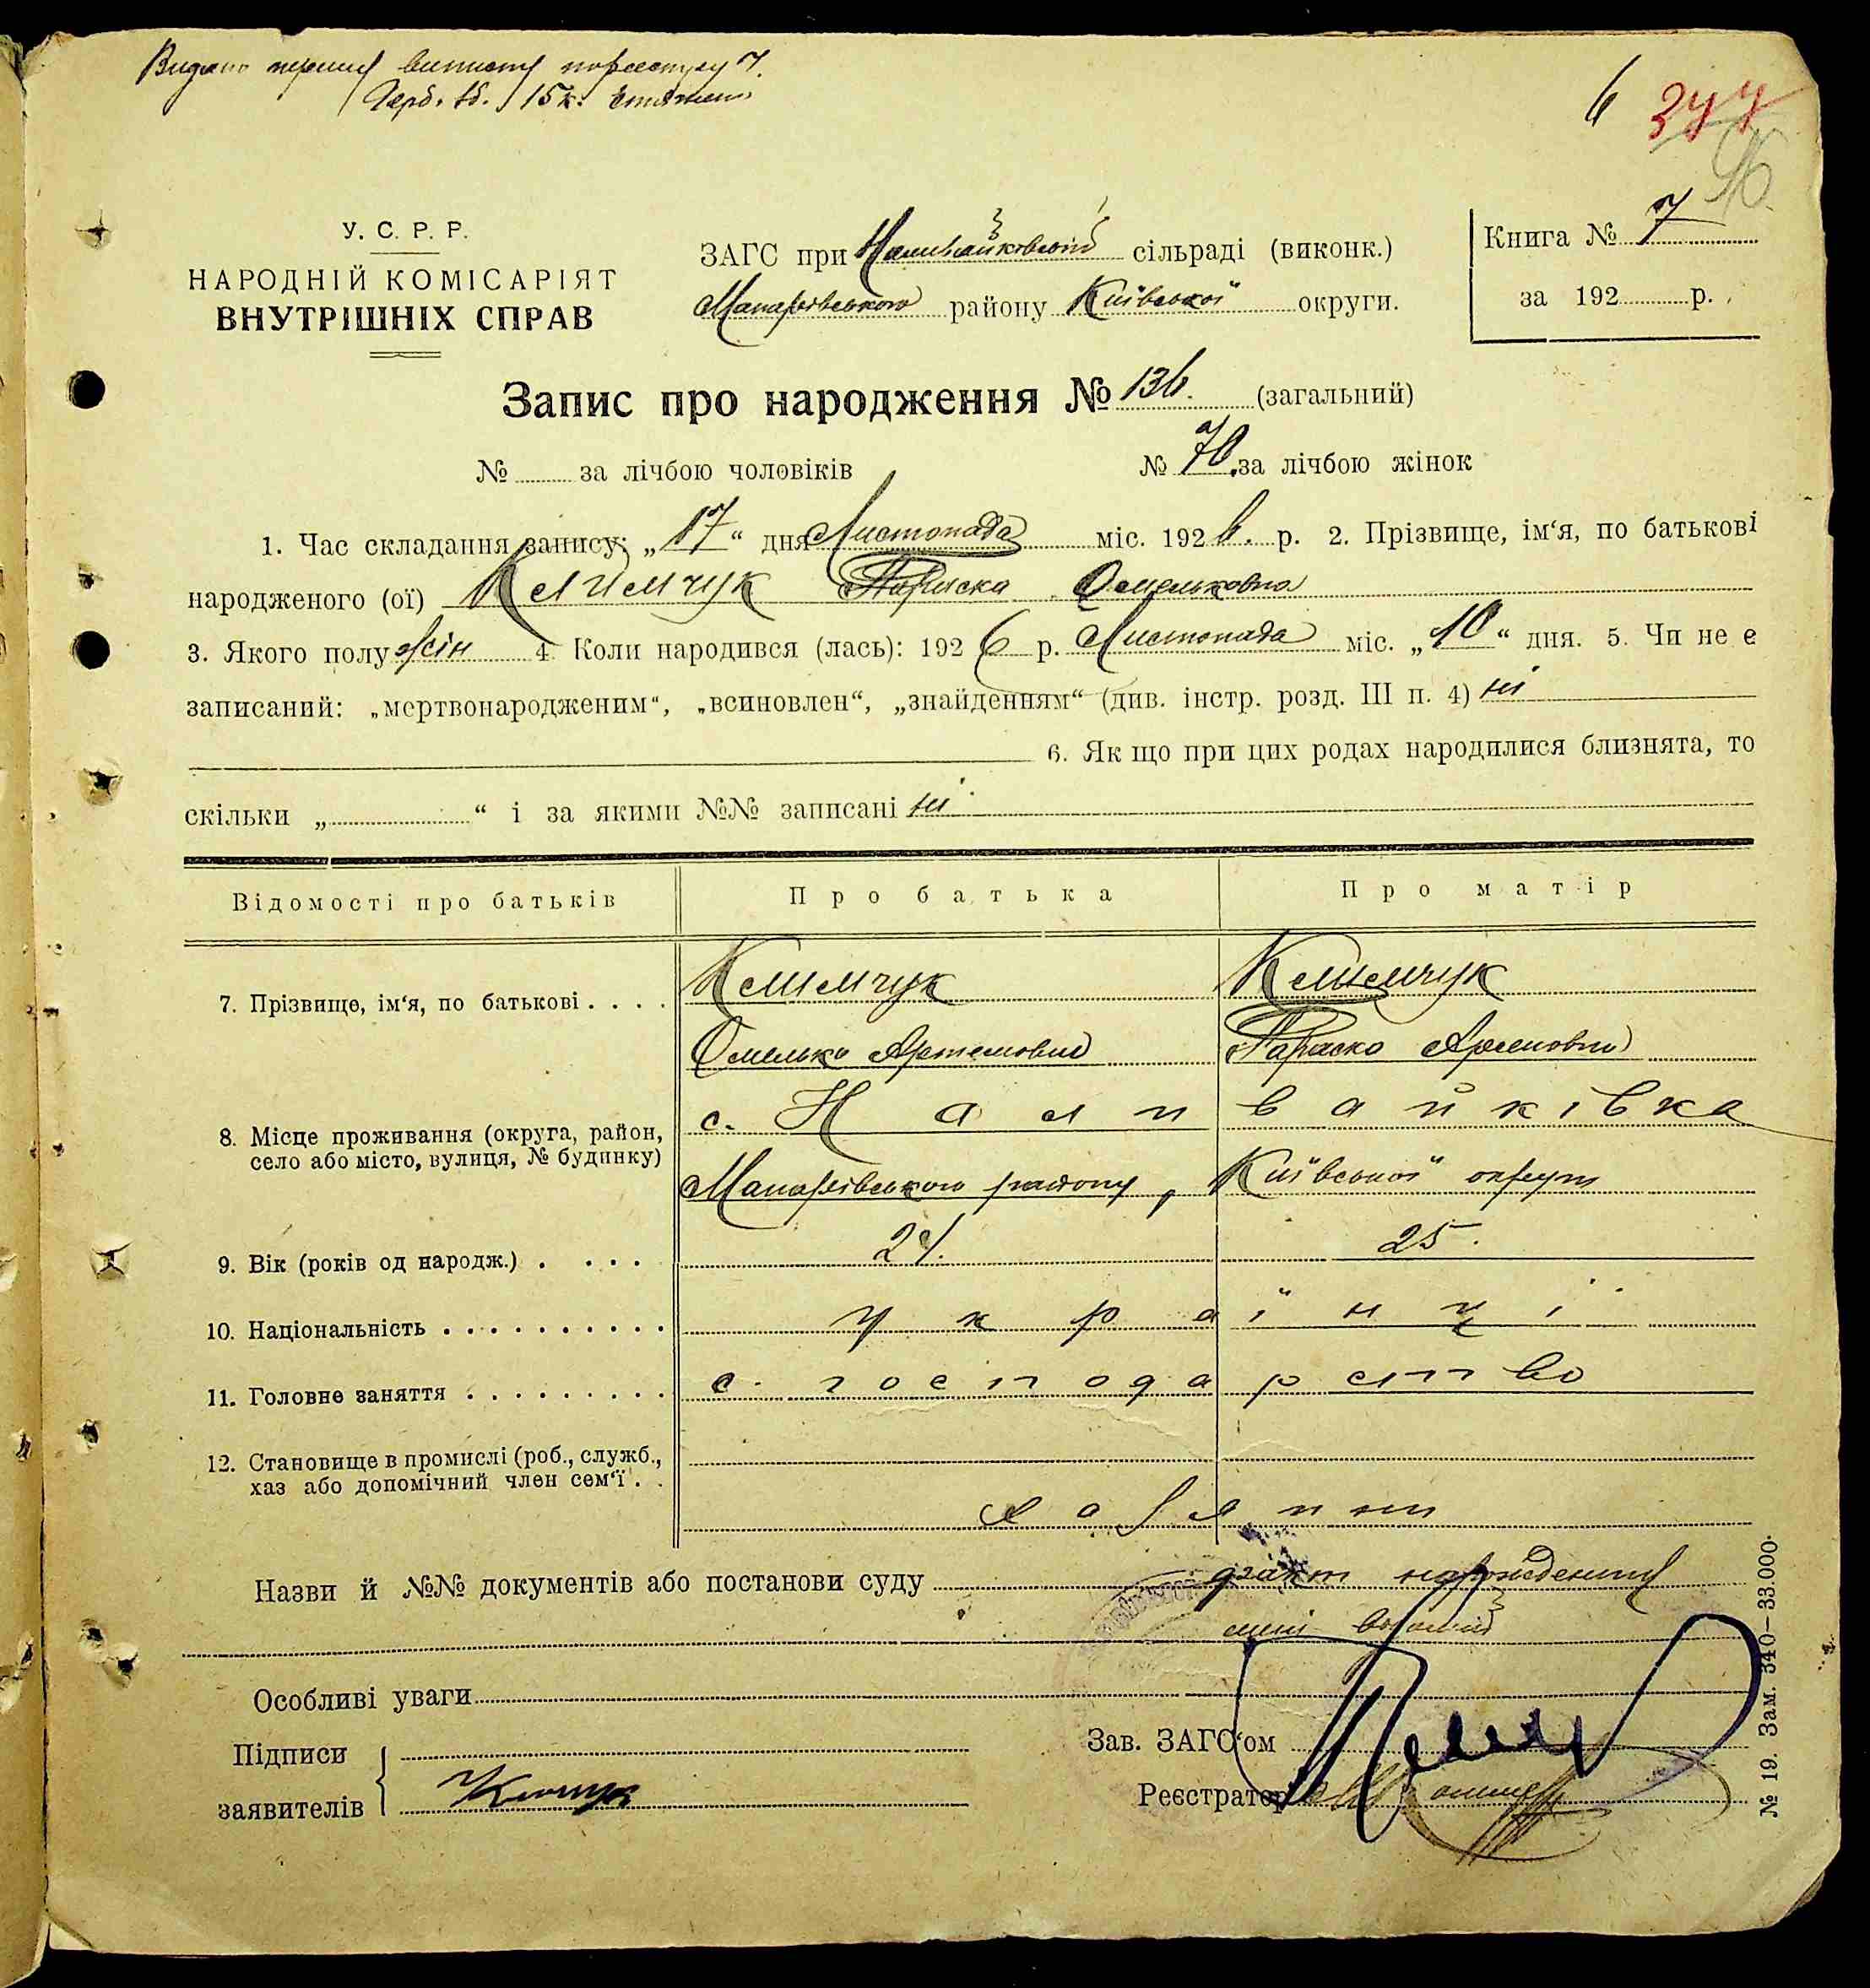 Видано першу виписку по реєстру 7.
Герб. зб. 15 к.
6
У. С. Р. Р.
НАРОДНІЙ КОМІСАРІЯТ
ВНУТРІШНІХ СПРАВ
ЗАГС при Наливайковській сільраді (виконк.)
Макарівського району Київської округи.
Книга № 7
за 192 р.
Запис про народження № 136. (загальний)
№ за лічбою чоловіків № 70. за лічбою жінок
1. Час складання запису: „17“ дня Листопада міс. 1926. р. 2. Прізвище, ім‘я, по батькові
народженого (ої) Климчук Параска Омельковна
3. Якого полу жін 4 Коли народився (лась): 1926 р. Листопада міс. „10“ дня. 5. Чи не є
записаний: „мертвонародженим“, „всиновлен“, „знайденням“ (див. інстр. розд. III п. 4) ні
6. Як що при цих родах народилися близнята, то
скільки „ “ і за якими №№ записані ні
Відомості про батьків Про батька Про матір
7. Прізвище, ім‘я, по батькові . . . . Климчук Климчук
Омелько Артемович Параска
8. Місце проживання (округа, район, село або місто, вулиця, № будинку) с. Наливайківка
Макарівського району, Київської округи
9. Вік (років од народж.) . . . . 25.
10. Національність . . . . . . . . . . українці
11. Головне заняття . . . . . . . . . с. господарство
12. Становище в промислі (роб., служб.,
хаз або допомічний член сем‘ї . .
хазяини
Назви й №№ документів або постанови суду факт народження
мені відомий
Особливі уваги
Підписи
заявителів Климчук
Зав. ЗАГС‘ом
Реєстратор
№ 19. Зам. 340—33.000.